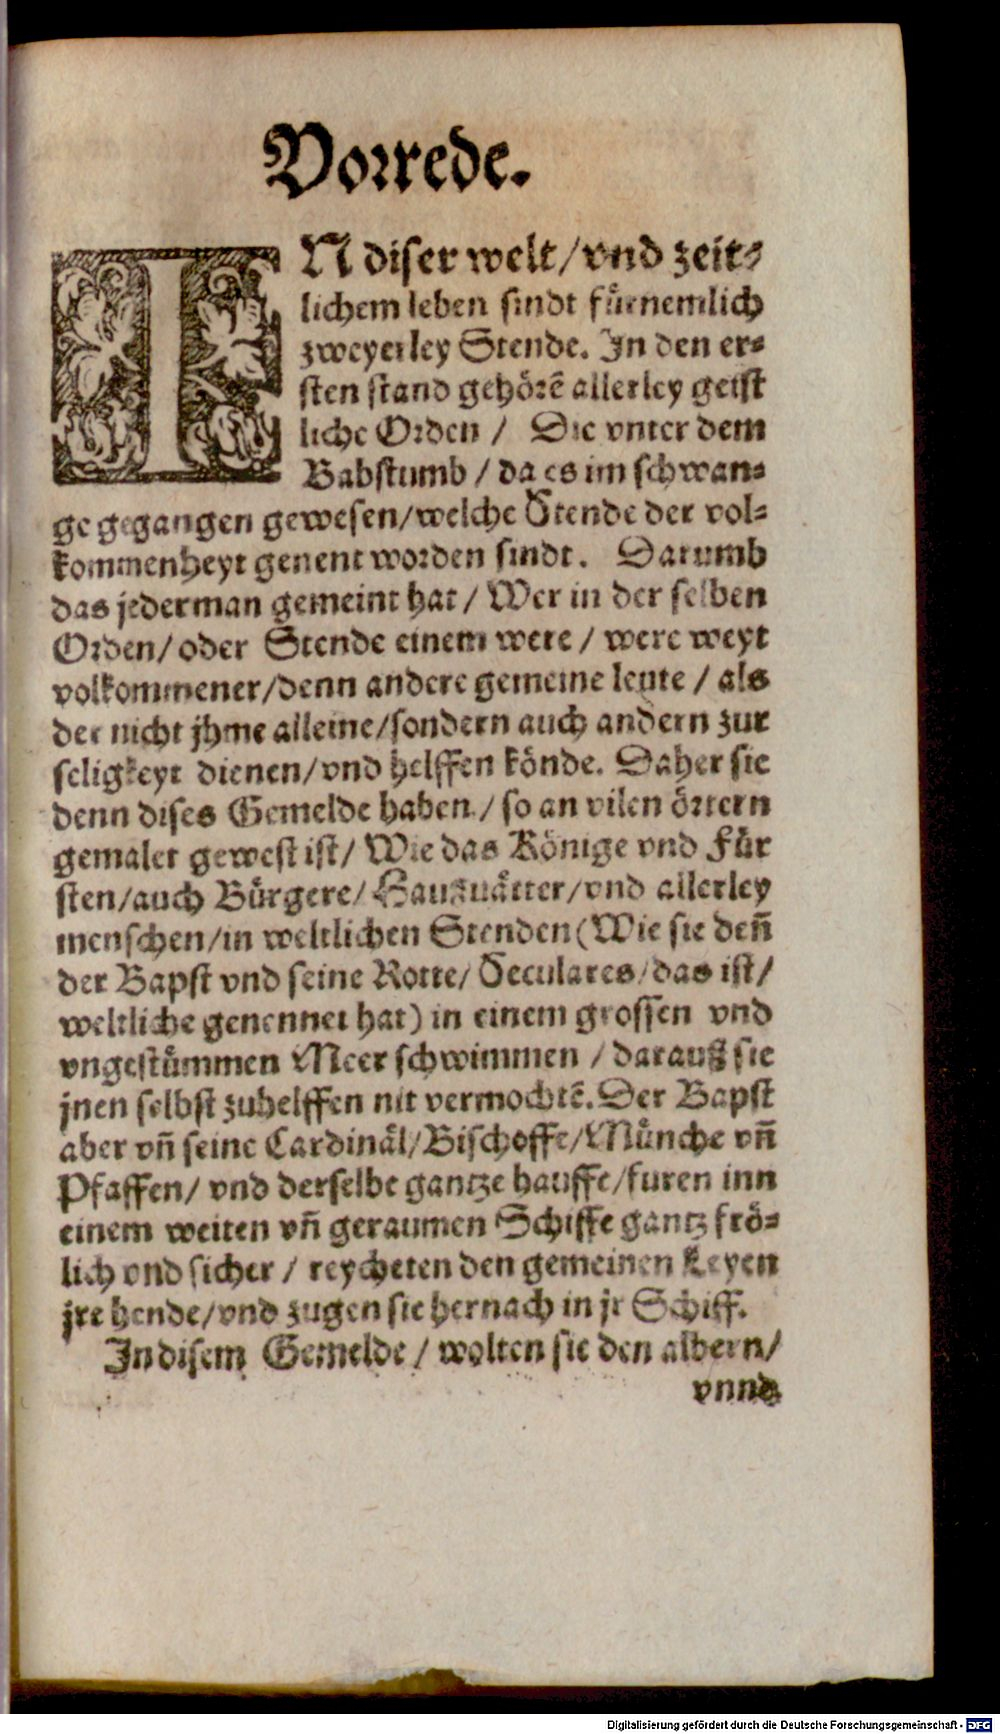 Vorrede.
IN diser welt/vnd zeit-
lichem leben sindt fürnemlich
zweyerley Stende. In den er-
sten stand gehörē allerley geist
liche Orden / Die vnter dem
Babstumb / da es im schwan-
ge gegangen gewesen/welche Stende der vol-
kommenheyt genent worden sindt. Darumb
das jederman gemeint hat / Wer in der selben
Orden/ oder Stende einem were / were weyt
volkommener/denn andere gemeine leute / als
der nicht jhme alleine/sondern auch andern zur
seligkeyt dienen/vnd helffen könde. Daher sie
denn dises Gemelde haben / so an vilen örtern
gemalet gewest ist/ Wie das Könige vnd Für
sten/auch Bürgere/ Haußuätter/vnd allerley
menschen/in weltlichen Stenden (Wie sie deñ
der Bapst vnd seine Rotte/ Seculares/das ist/
weltliche genennet hat) in einem grossen vnd
vngestümmen Meer schwimmen / darauß sie
jnen selbst zuhelffen nit vermochtē. Der Bapst
aber vñ seine Cardinäl/Bischoffe/Münche vñ
Pfaffen/ vnd derselbe gantze hauffe/furen inn
einem weiten vñ geraumen Schiffe gantz frö-
lich vnd sicher / reycheten den gemeinen Leyen
jre hende/vnd zugen sie hernach in jr Schiff.
In disem Gemelde / wolten sie den albern/
vnnd
Digitalisierung gefördert durch die Deutsche Forschungsgemeinschaft - DFG